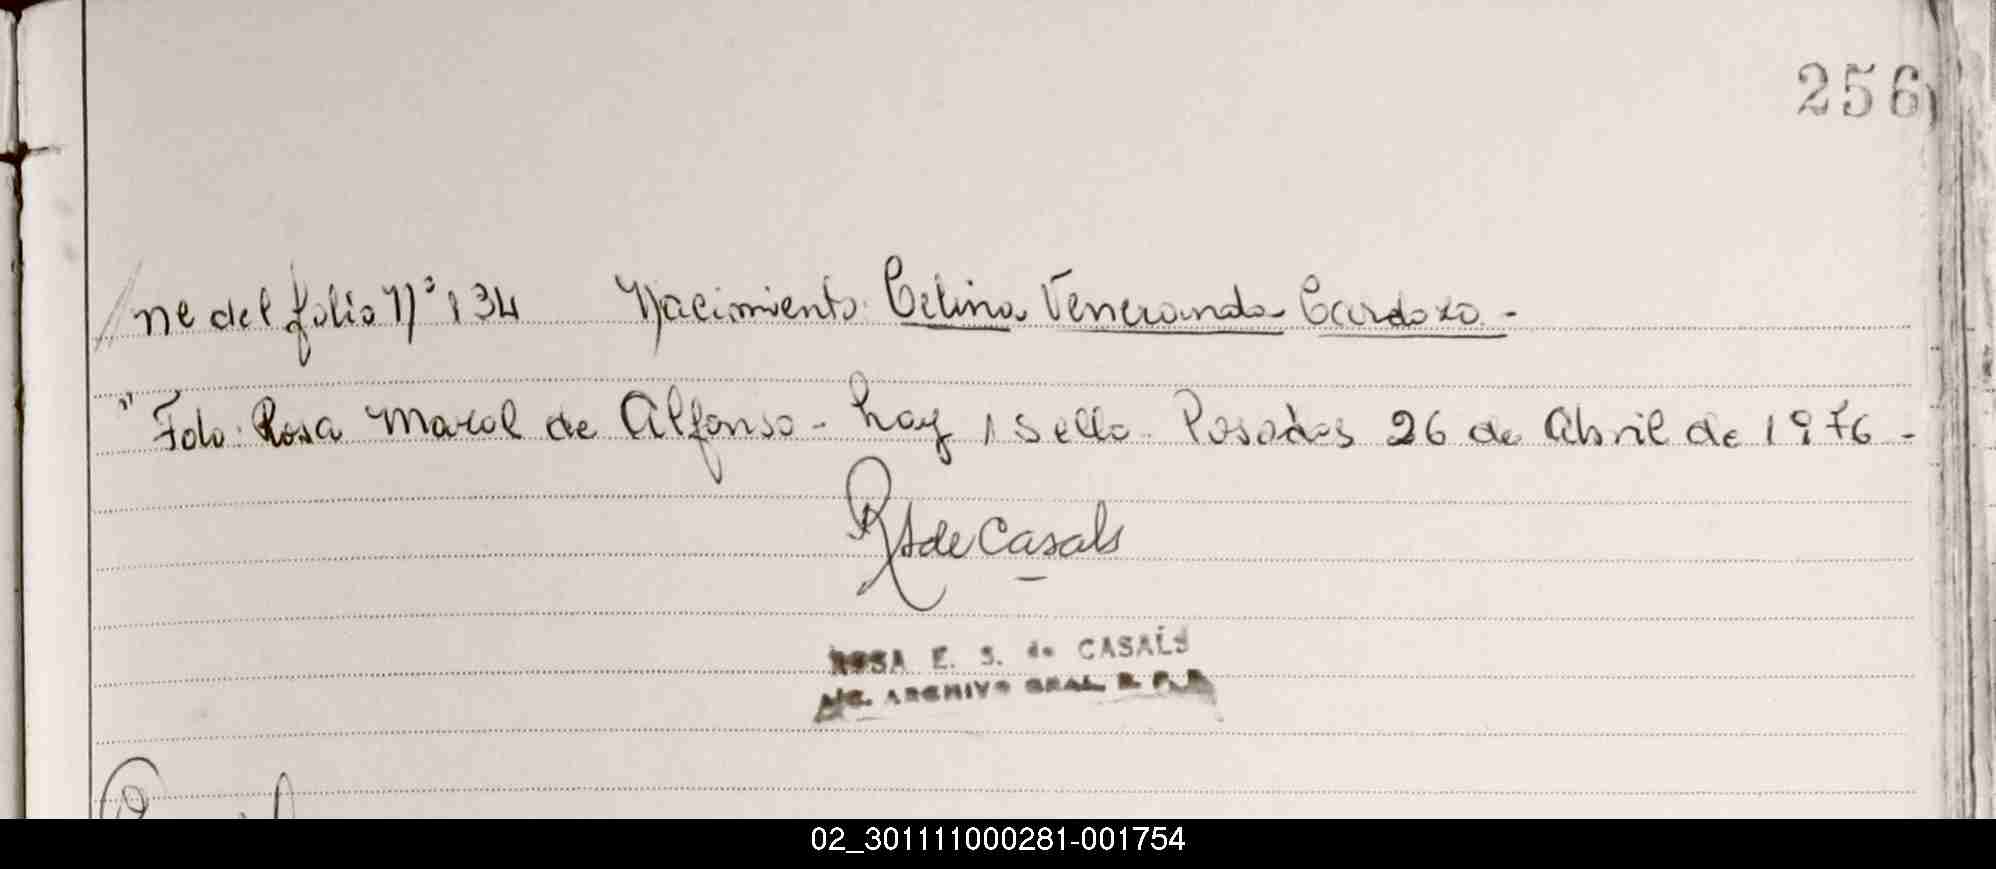 256
//ne del folio Nº 134 Nacimiento Celina Veneranda Cardozo.-
" Fdo: Rosa Marol de Alfonso - hay 1 sello. Posadas 26 de Abril de 1976.-
RSde Casals
ROSA E. S. de CASALS
ARCHIVO GRAL. R. P. P.
02_301111000281-001754